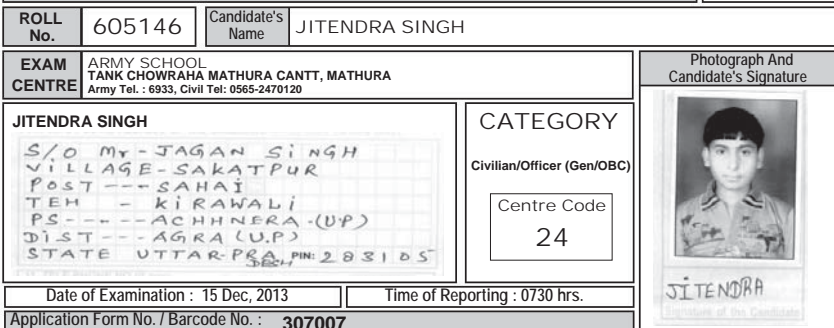 ROLL No. 605146 Candidate's Name JITENDRA SINGH
EXAM CENTRE
ARMY SCHOOL
TANK CHOWRAHA MATHURA CANTT, MATHURA
Army Tel. : 6933, Civil Tel: 0565-2470120
Photograph And
Candidate's Signature
JITENDRA SINGH
S/O Mr - JAGAN SiNGH
ViLLAGE - SAKATPUR
POST --- SAHAI
TEH - KiRAWALi
PS ----- ACHHNERA -(U.P)
DiST --- AGRA (U.P)
STATE UTTAR-PRA
DESH PIN: 283105
CATEGORY
Civilian/Officer (Gen/OBC)
Centre Code
24
JiTENDRA
Signature of the Candidate
Date of Examination : 15 Dec, 2013 Time of Reporting : 0730 hrs.
Application Form No. / Barcode No. : 307007